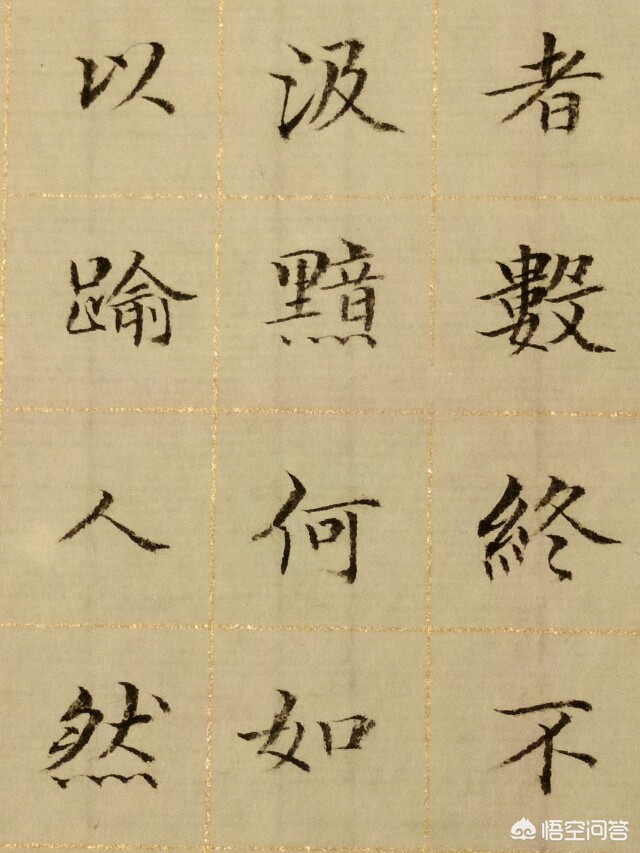 者數終不
汲黯何如
以踰人然
悟空问答